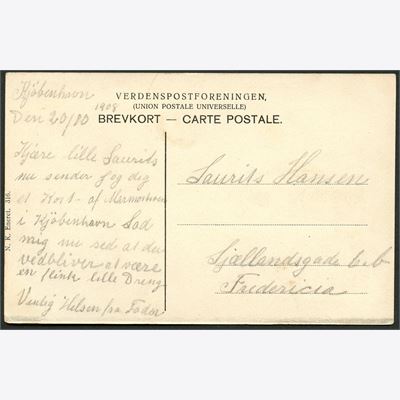 Kjøbenhavn
Den 20/10
1908
VERDENSPOSTFORENINGEN,
(UNION POSTALE UNIVERSELLE)
BREVKORT — CARTE POSTALE.
Kjære lille Laurits
nu sender jeg dig
et Kort af
i Kjøbenhavn Lad
mig nu sed at du
vedbliver at være
en flink lille Dreng
Venlig Helsen fra Fader
Laurits Hansen
Sjællandsgade
Fredericia
N. K. Eneret. 316.